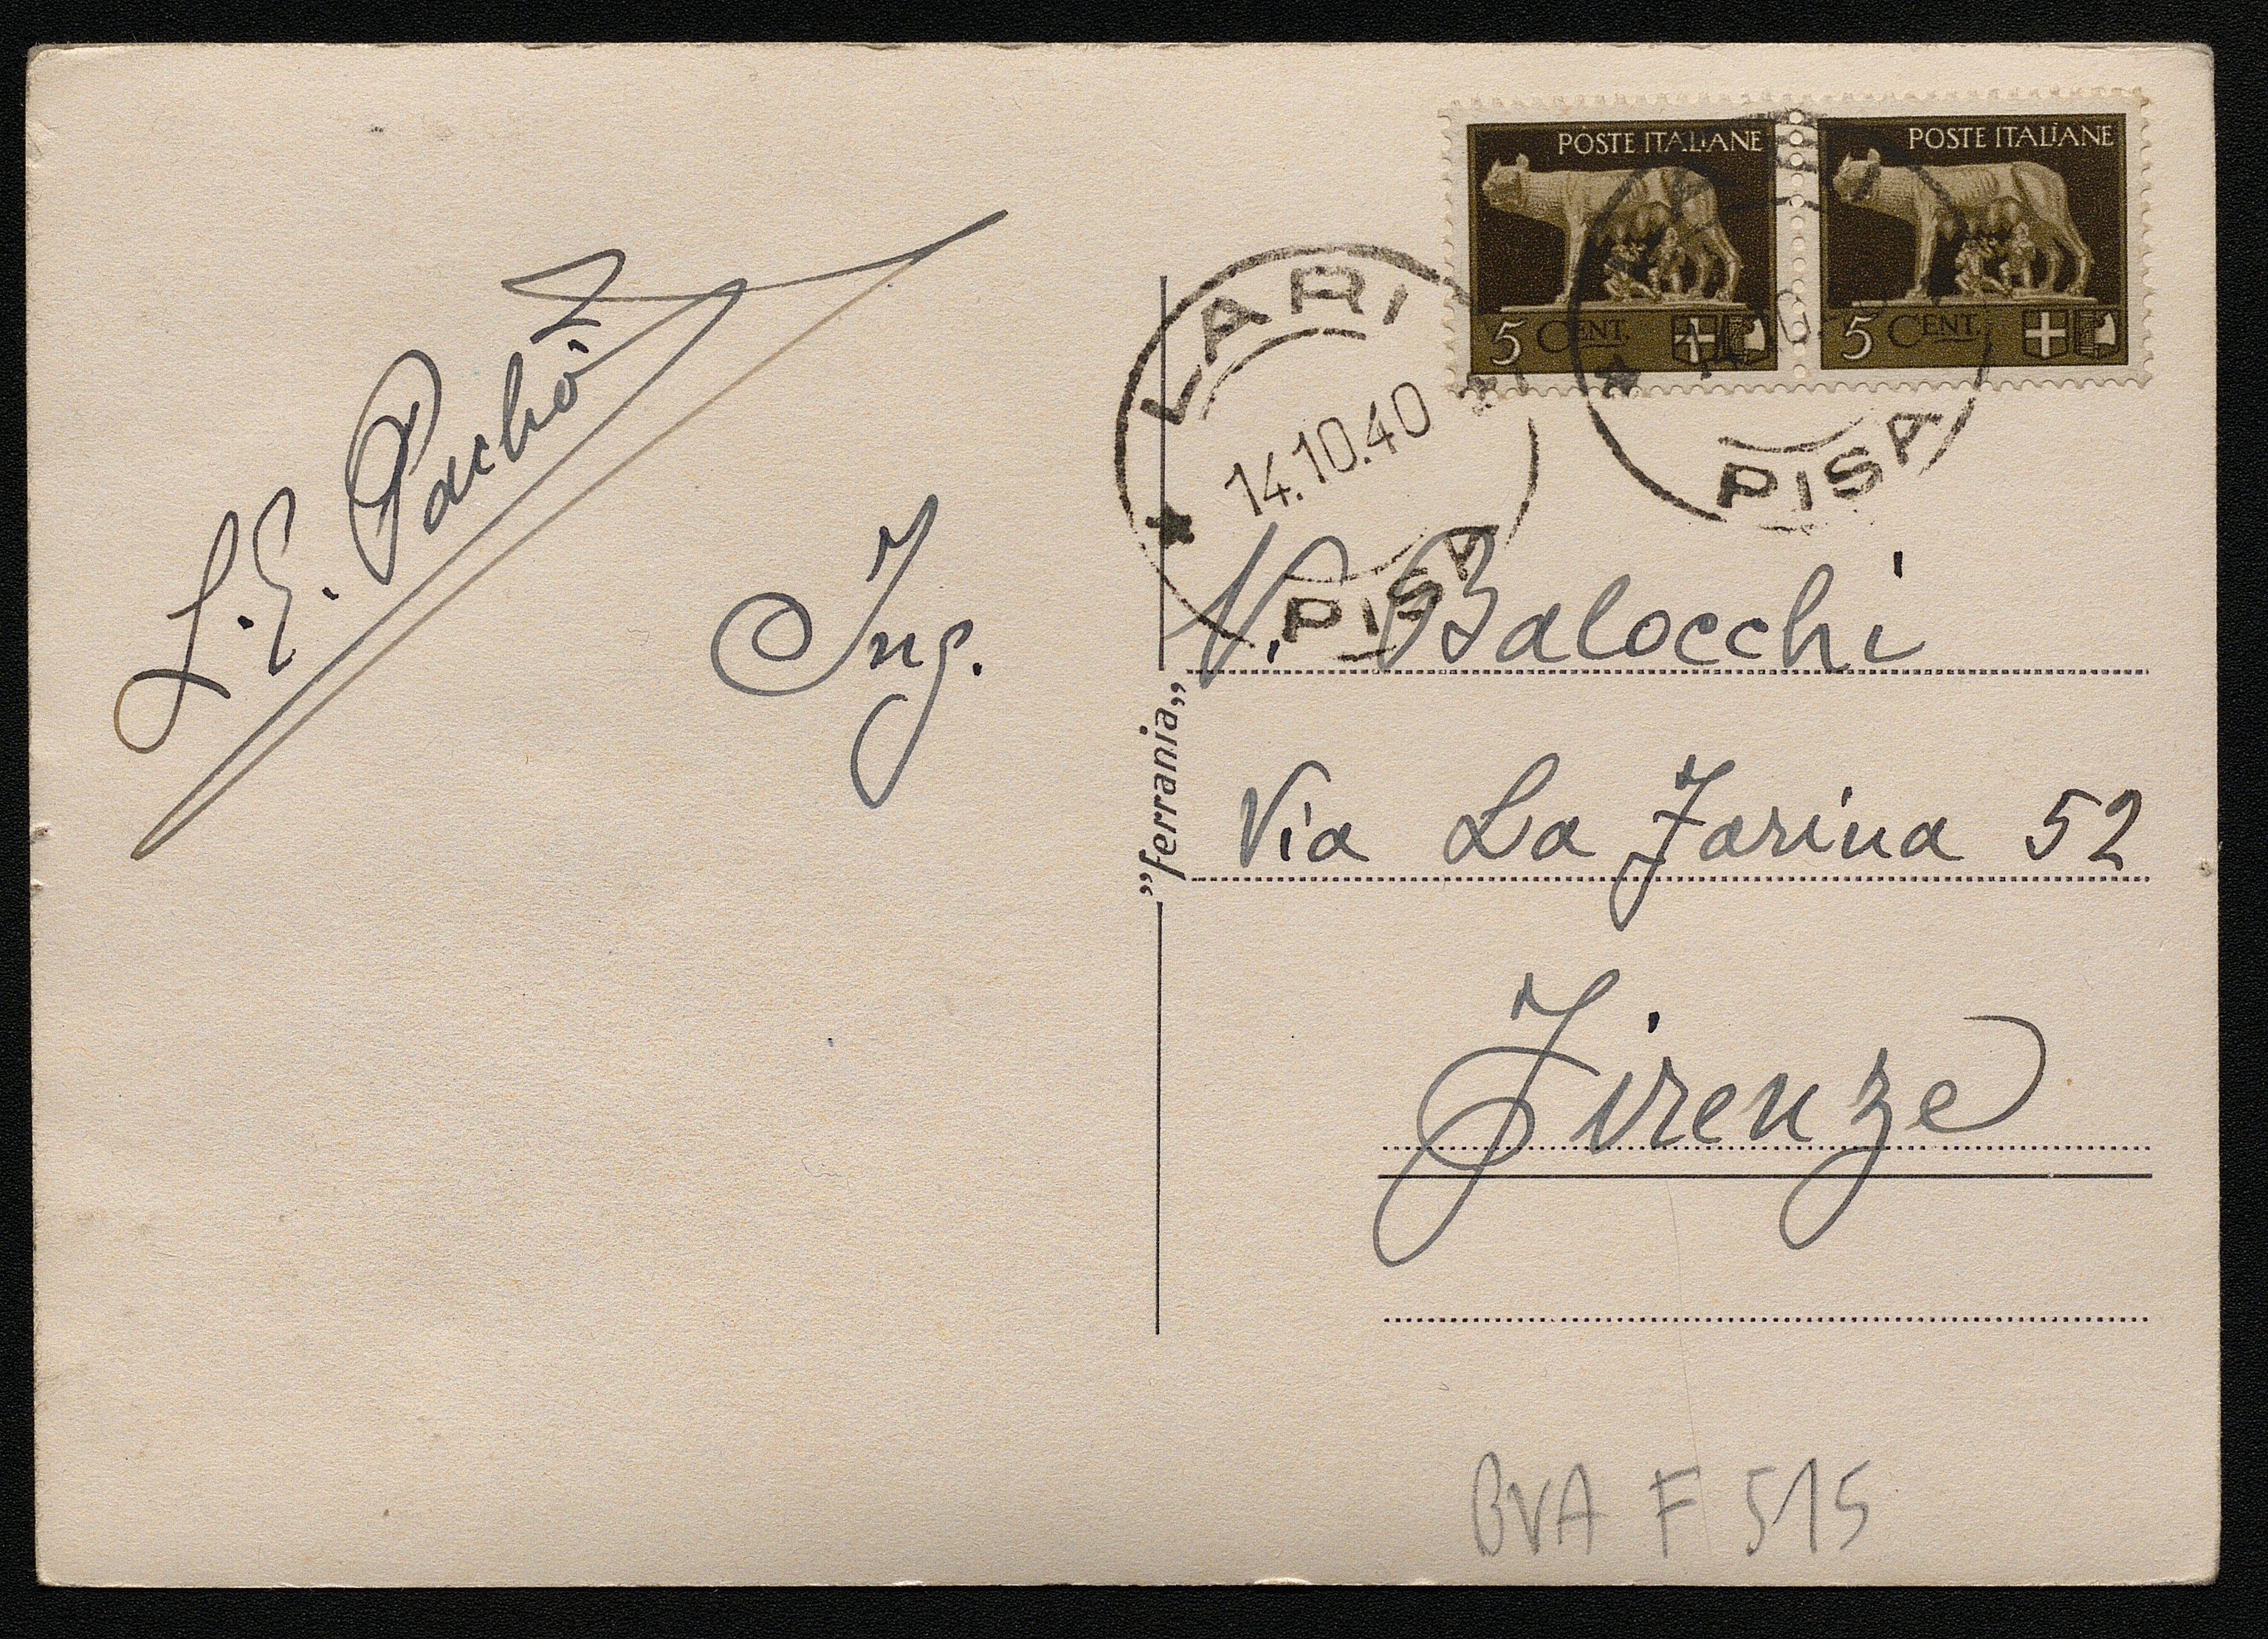 POSTE ITALIANE POSTE ITALIANE
5 CENT. 5 CENT.
LARI
14.10.40
PISA
PISA
L. E. Pachò
Ing. V. Balocchi
"ferrania"
Via La Farina 52
Firenze
BVA F 515